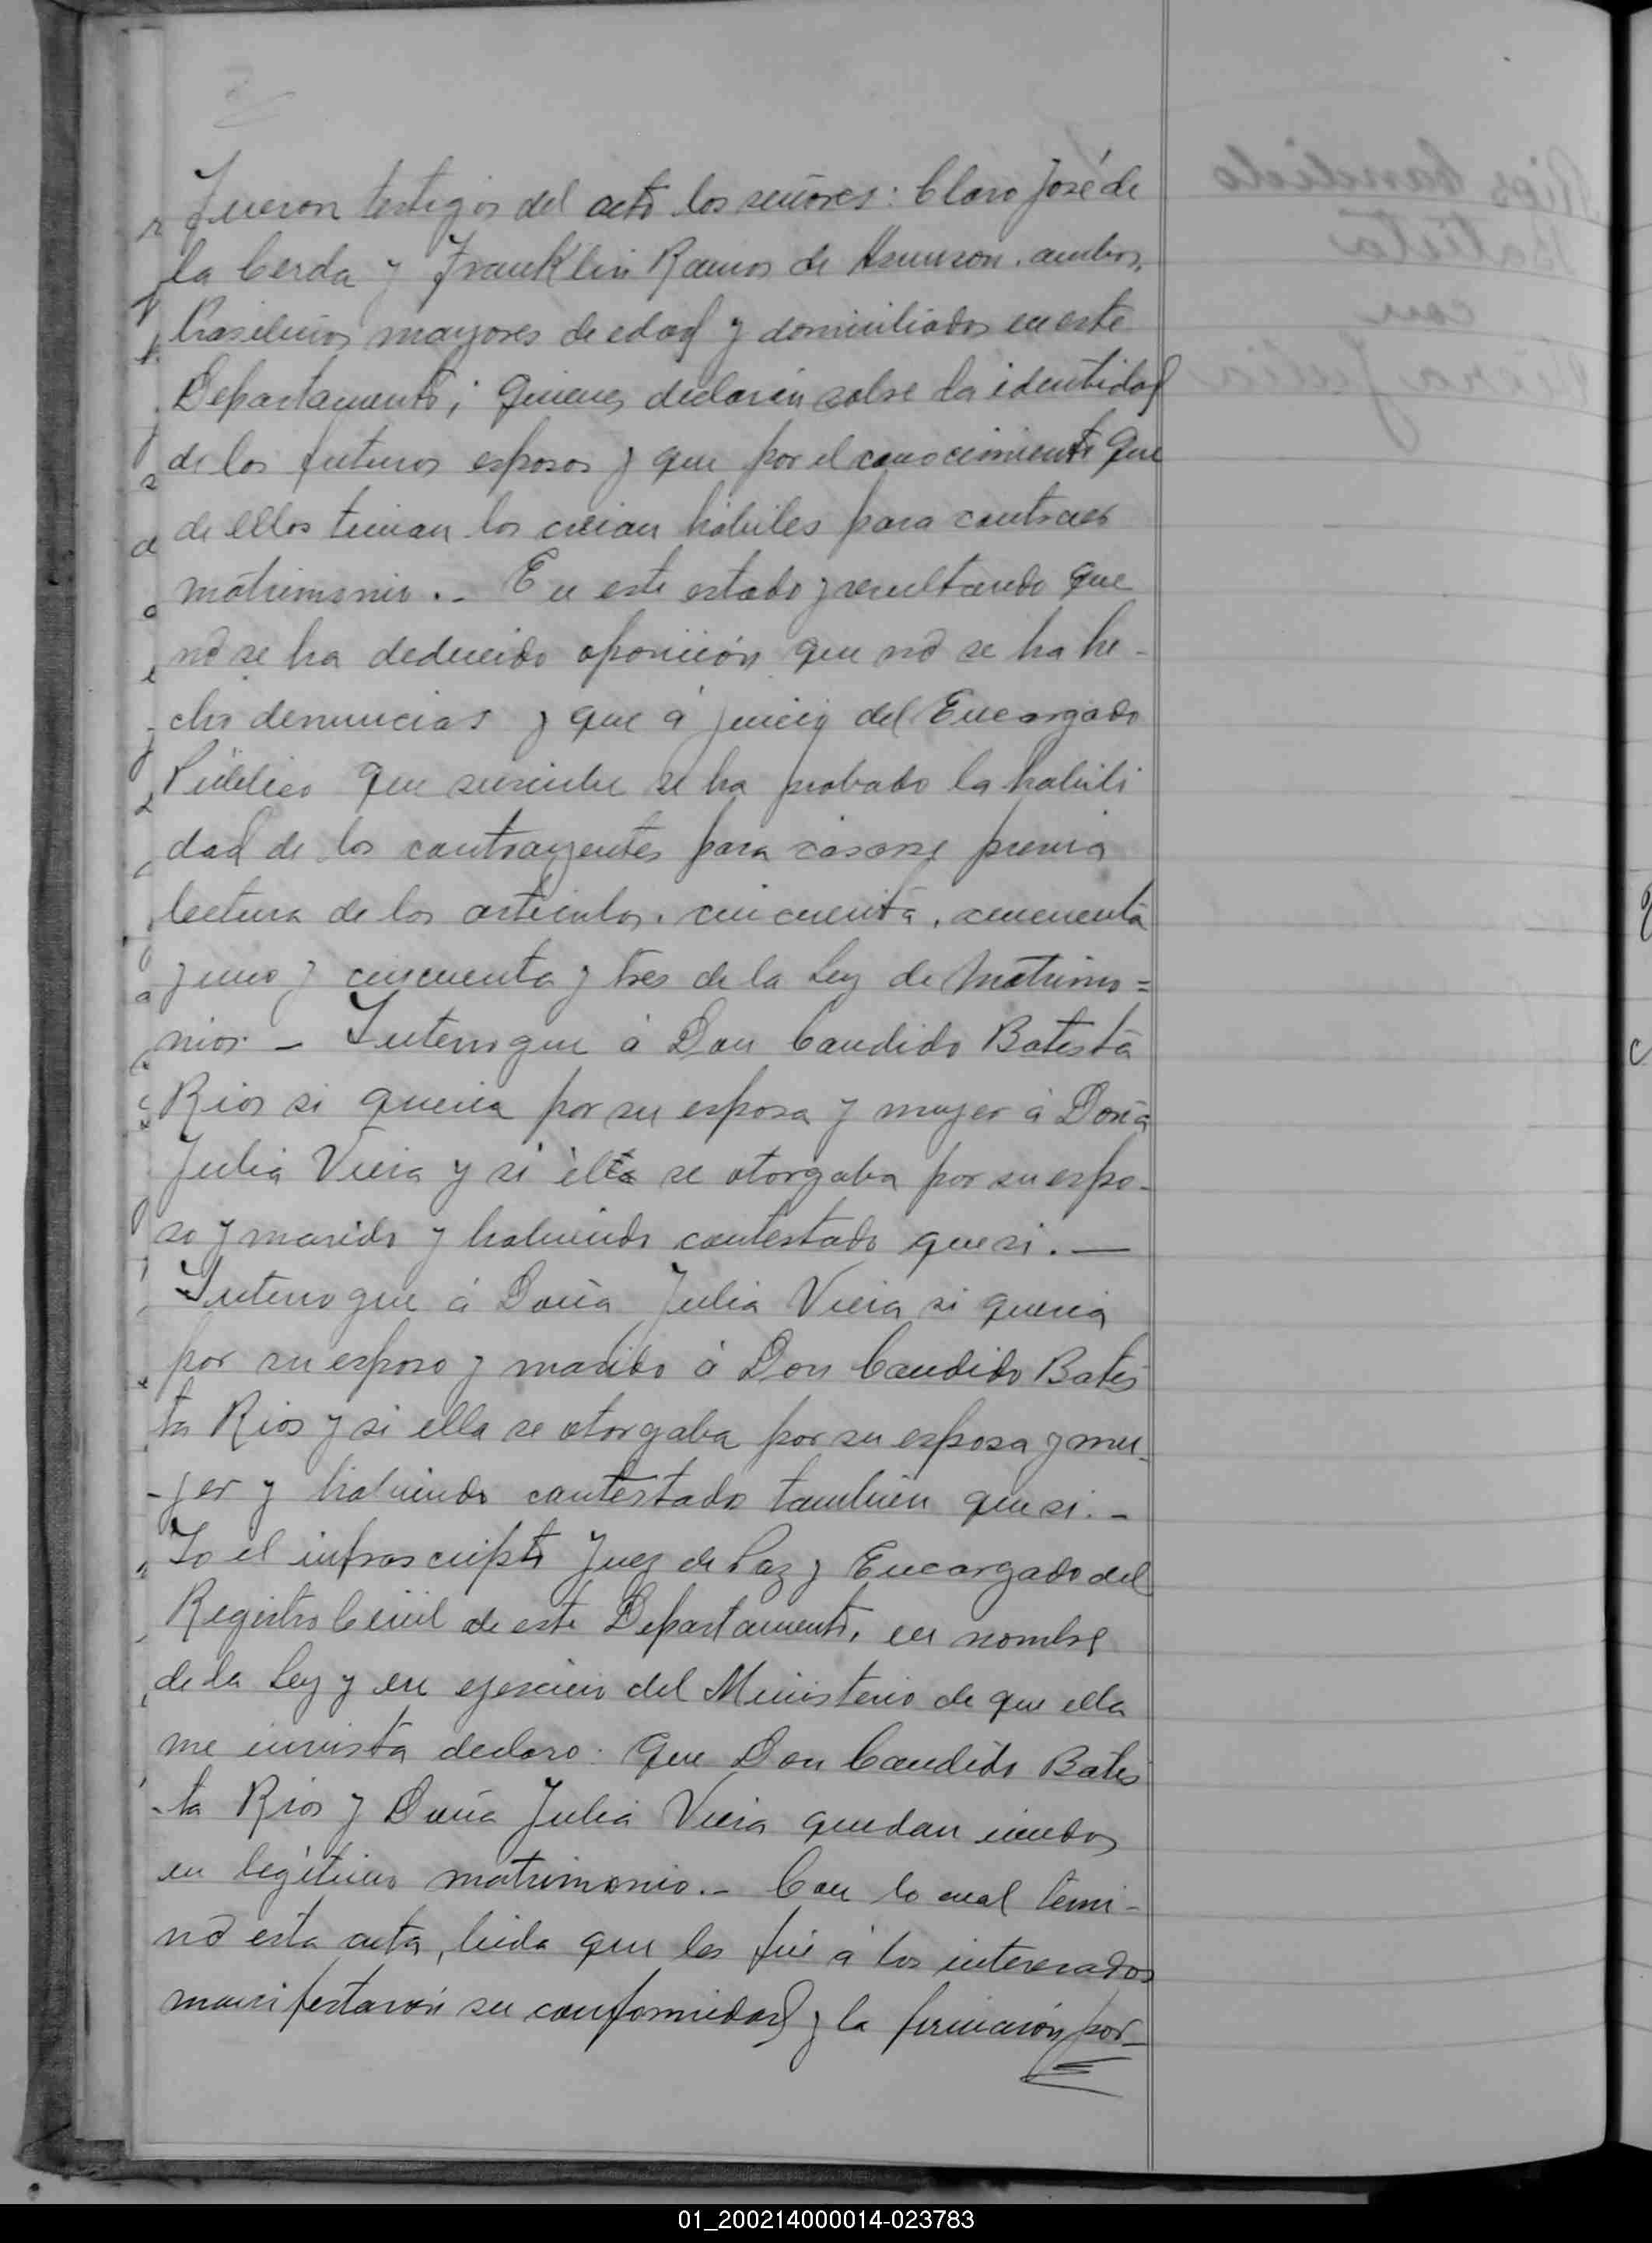 Fueron testigos del acto los señores: Claro José de
la Cerda y Franklin Ramos de Asunson. ambos,
brasileños mayores de edad y domiciliados en este
Departamento; quienes declarán sobre la identidad
de los futuros esposos y que por el conocimiento que
de ellos tenian los creian hábiles para contraer
matrimonio.- En este estado y resultando que
nó se ha deducido oposición que nó se ha he-
cho denuncias y que á juicio del Encargado
Público que suscribe se ha probado la habili
dad de los contrayentes para casarse previa
lectura de los articulos. cincuenta, cincuenta
y uno y cincuenta y tres de la Ley de Matrimo=
nios.- Interrogue á Don Candido Batista
Rios si queria por su esposa y mujer á Doña
Julia Vieia y si él se otorgaba por su espo-
so y marido y habiendo contestado que si.-
Interrogue á Doña Julia Vieia si queria
por su esposo y marido á Don Candido Batis
ta Rios y si ella se otorgaba por su esposa y mu-
-jer y habiendo contestado tambien que si.-
Yo el infrascripto Juez de Paz y Encargado del
Registro Civil de este Departamento, en nombre
de la Ley y en ejercicio del Ministerio de que ella
me invista declaro: Que Don Candido Batis
-ta Rios y Doña Julia Vieia quedan unidos
en legítimo matrimonio.- Con lo cual termi-
nó esta acta, leida que les fué á los interesados
manifestarón su conformidad y la firmarón por-
Rios Candido
Batista
con
Julia
01_200214000014-023783